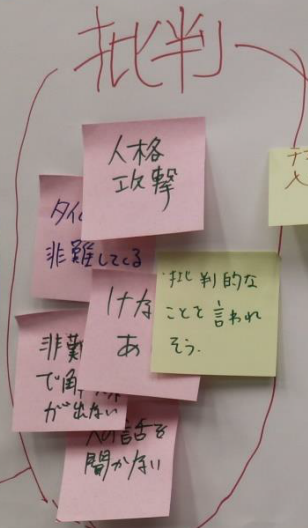 批判
人格
攻撃
タイ
非難してくる
批判的な
ことを言われ
そう.
けな
あ
非難
で角
が出ない
の話を
聞かない